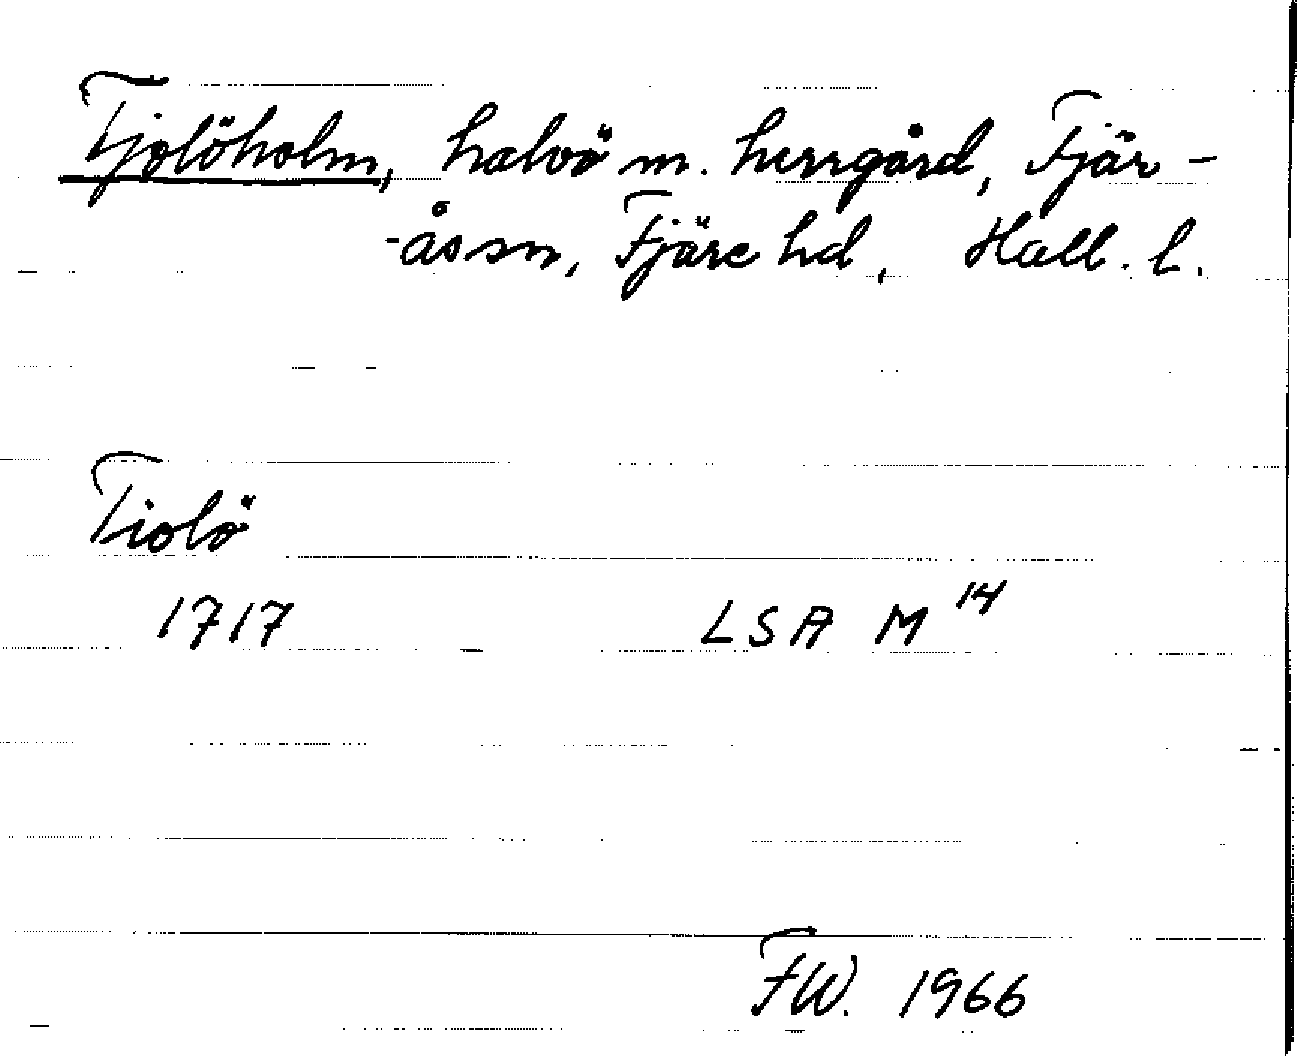 Tjolöholm, halvö m. herrgård, Fjär-
-ås sn, Fjäre hd, Hall. l.
Tiolö
1717 LSA M 14
FW. 1966